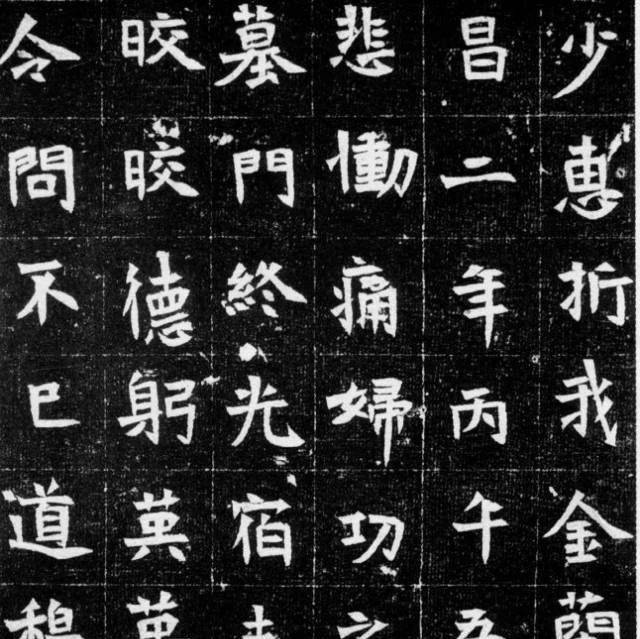 少惠折我金
昌二年丙午五
悲慟痛婦功之
墓門終光宿
晈晈德躬英英
令問不已道穆